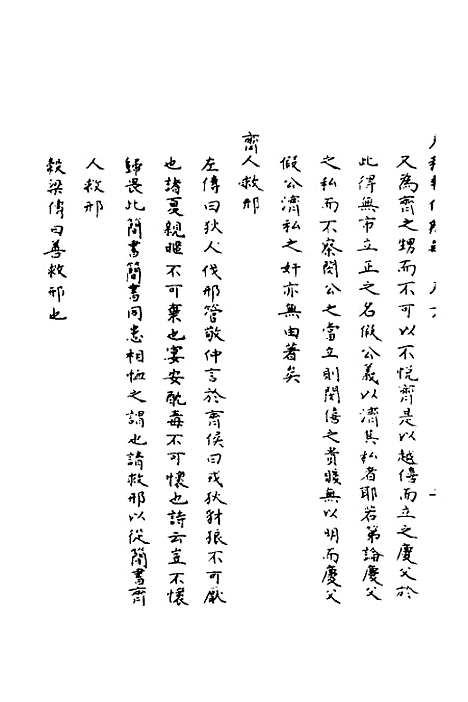 又為齊之甥而不可以不悅齊是以越僖而立之慶父於
此得無市立正之名假公義以濟其私者耶若第論慶父
之私而不察閔公之當立則閔僖之貴賤無以明而慶父
假公濟私之奸亦無由著矣
齊人救邢
左傳曰狄人伐邢管敬仲言於齊侯曰戎狄豺狼不可厭
也諸夏親暱不可棄也宴安酖毒不可懷也詩云豈不懷
歸畏此簡書簡書同恚相恤之謂也請救邢以從簡書齊
人救邢
穀梁傳曰善救邢也